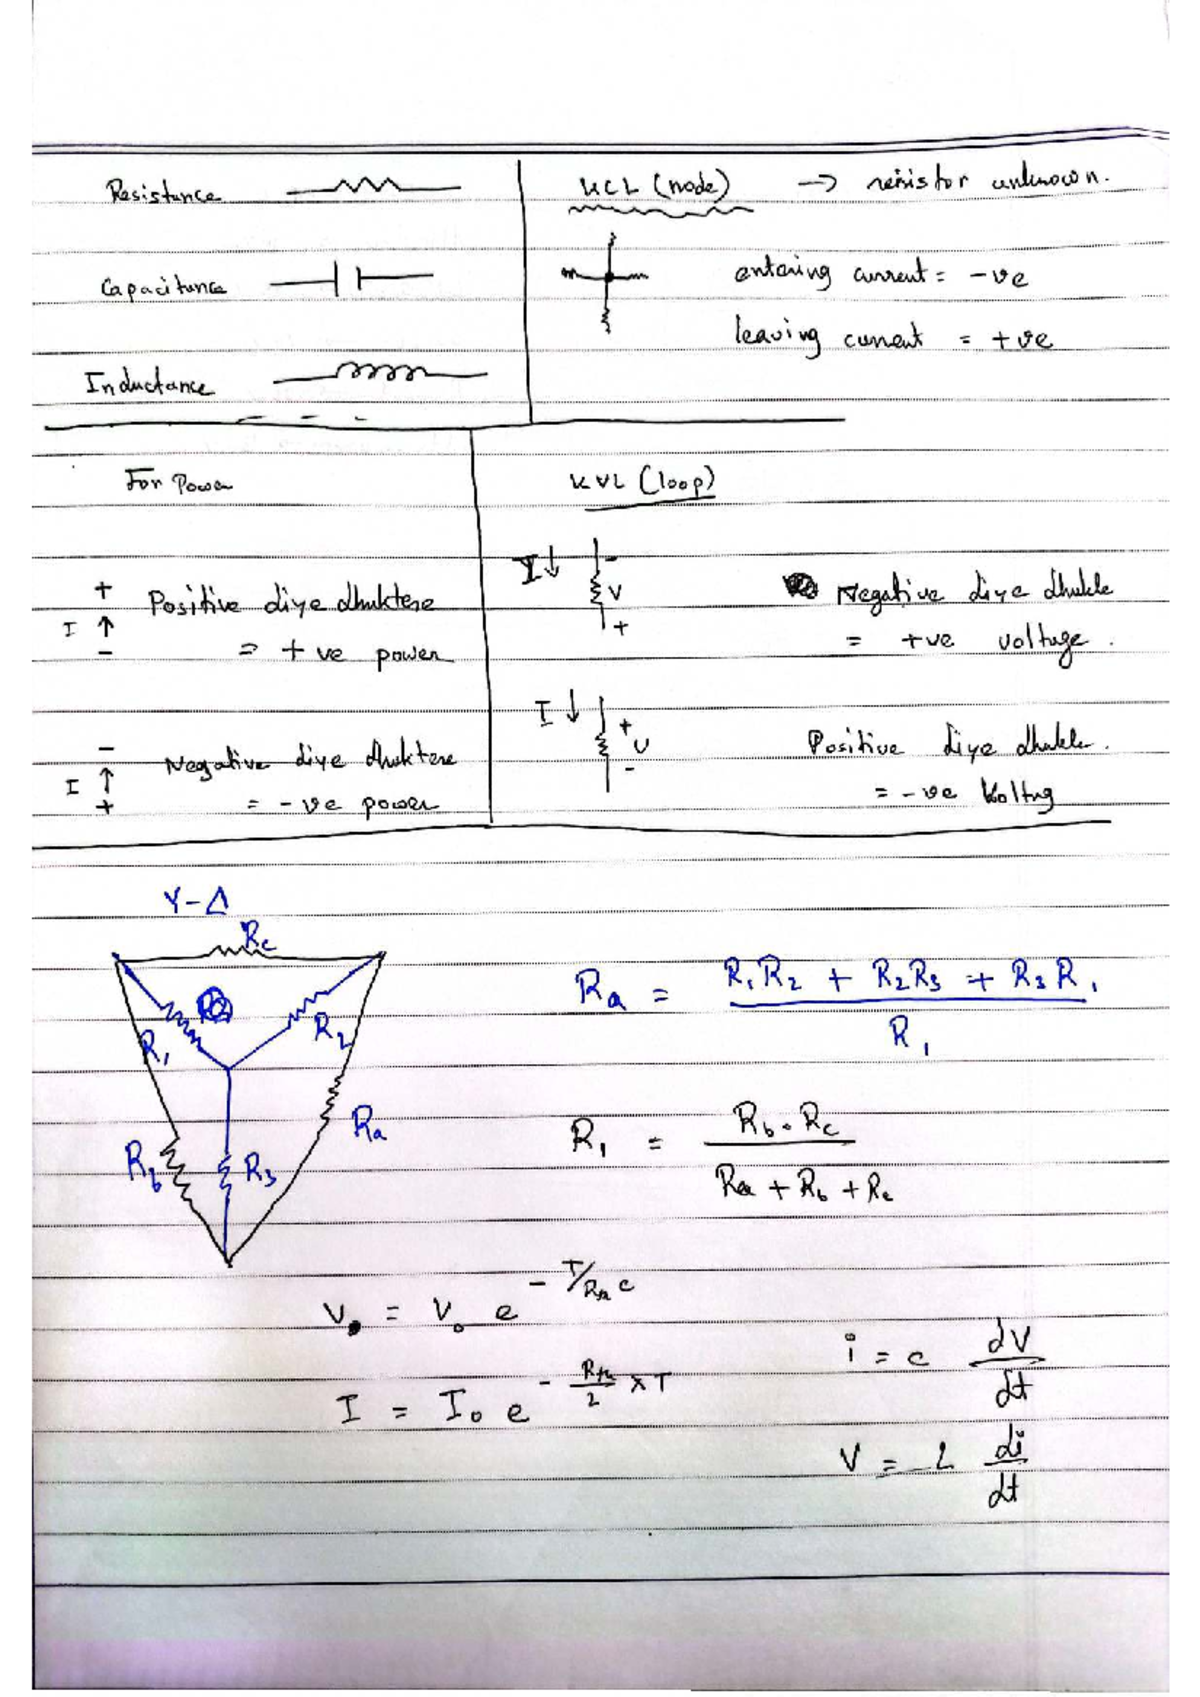 Resistance
Capacitance
Inductance
KCL (node) → resistor unknown.
entering current = -ve
leaving current = +ve
For Power
+
I ↑ Positive diye dhuktese
-
= + ve power
-
I ↑ Negative diye dhuktese
+
= - ve power
KVL (loop)
I ↓ -
V
+
Negative diye dhukle
= +ve voltage.
I ↓ +
V
-
Positive diye dhukle.
= -ve Voltag
Y-Δ
Rc
R1
R2
Ra
Rb
R3
Ra = R1R2 + R2R3 + R3R1 / R1
R1 = Rb . Rc / Ra + Rb + Rc
V = V0 e
I = I0 e
i = c dV/dt
V = L di/dt